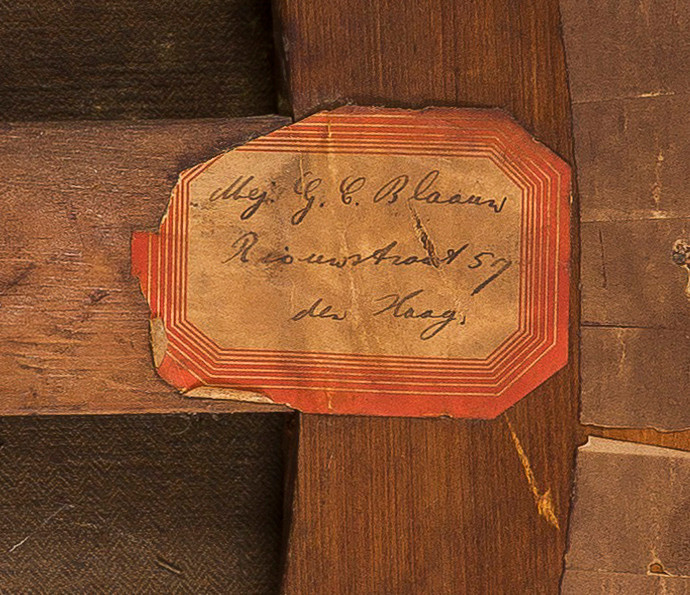 Mej. G. C. Blaauw
Riouwstraat 57
den Haag.